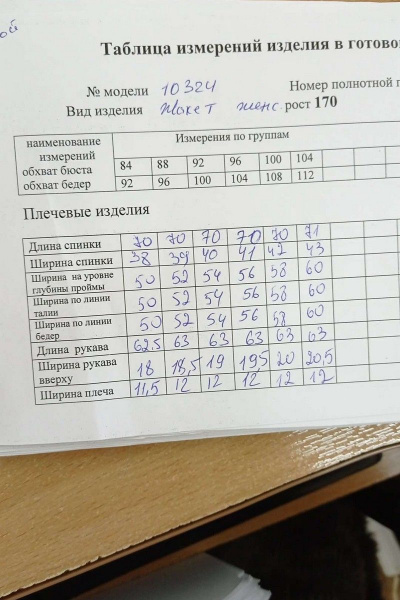 ой
Таблица измерений изделия в готово
№ модели 10324 Номер полнотной г
Вид изделия Жакет женс. рост 170
наименование измерений Измерения по группам
обхват бюста 84 88 92 96 100 104
обхват бедер 92 96 100 104 108 112
Плечевые изделия
Длина спинки 70 70 70 70 70 71
Ширина спинки 38 39 40 41 42 43
Ширина на уровне глубины проймы 50 52 54 56 58 60
Ширина по линии талии 50 52 54 56 58 60
Ширина по линии бедер 50 52 54 56 58 60
Длина рукава 62,5 63 63 63 63 63
Ширина рукава вверху 18 18,5 19 19,5 20 20,5
Ширина плеча 11,5 12 12 12 12 12